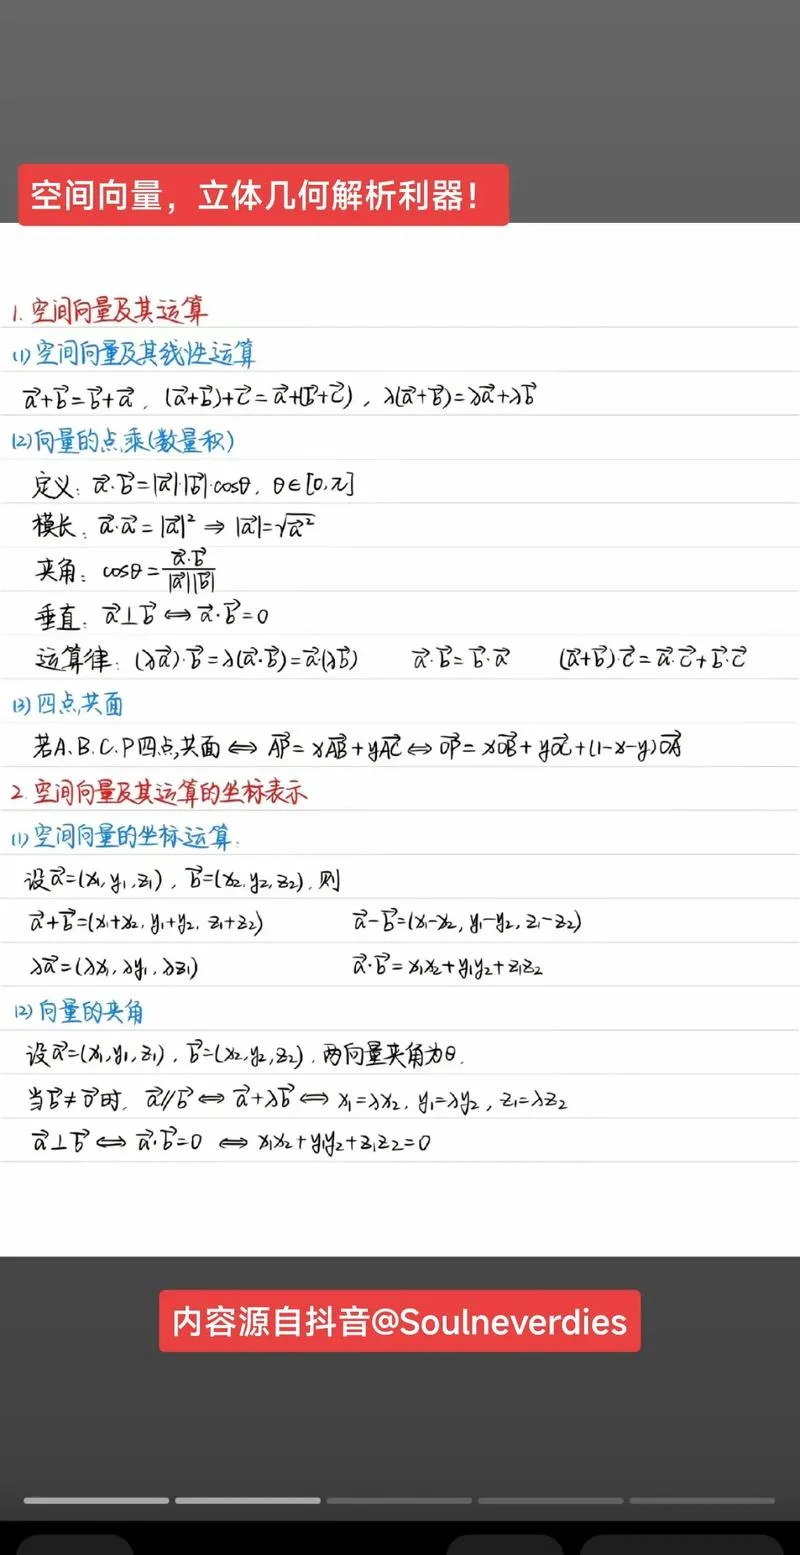 空间向量，立体几何解析利器！
1. 空间向量及其运算
(1) 空间向量及其线性运算
a⃗+b⃗=b⃗+a⃗，(a⃗+b⃗)+c⃗=a⃗+(b⃗+c⃗)，λ(a⃗+b⃗)=λa⃗+λb⃗
(2) 向量的点乘(数量积)
定义：a⃗·b⃗=|a⃗|·|b⃗|·cosθ，θ∈[0,π]
模长：a⃗·a⃗=|a⃗|²⇒|a⃗|=√a⃗²
夹角：cosθ=a⃗·b⃗/|a⃗||b⃗|
垂直：a⃗⊥b⃗⇔a⃗·b⃗=0
运算律：(λa⃗)·b⃗=λ(a⃗·b⃗)=a⃗·(λb⃗) a⃗·b⃗=b⃗·a⃗ (a⃗+b⃗)·c⃗=a⃗·c⃗+b⃗·c⃗
(3) 四点共面
若A、B、C、P四点共面⇔AP⃗=xAB⃗+yAC⃗⇔OP⃗=xOB⃗+yOC⃗+(1-x-y)OA⃗
2. 空间向量及其运算的坐标表示
(1) 空间向量的坐标运算：
设a⃗=(x₁,y₁,z₁)，b⃗=(x₂,y₂,z₂)，则
a⃗+b⃗=(x₁+x₂, y₁+y₂, z₁+z₂) a⃗-b⃗=(x₁-x₂, y₁-y₂, z₁-z₂)
λa⃗=(λx₁, λy₁, λz₁) a⃗·b⃗=x₁x₂+y₁y₂+z₁z₂
(2) 向量的夹角
设a⃗=(x₁,y₁,z₁)，b⃗=(x₂,y₂,z₂)，两向量夹角为θ.
当b⃗≠0⃗时，a⃗∥b⃗⇔a⃗+λb⃗⇔x₁=λx₂，y₁=λy₂，z₁=λz₂
a⃗⊥b⃗⇔a⃗·b⃗=0⇔x₁x₂+y₁y₂+z₁z₂=0
内容源自抖音@Soulneverdies